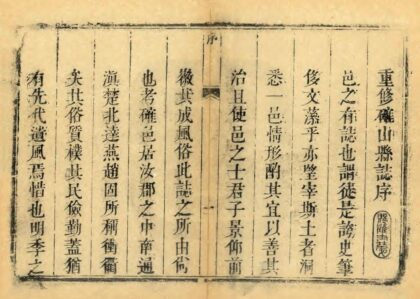 重修確山縣誌序
邑之有誌也謂徒是誇史筆
侈文藻乎亦墍宰斯土者洞
悉一邑情形酌其宜以善其
治且使邑之士君子景仰前
徽其成風俗此誌之所由尙
也考確邑居汝郡之中南通
滇楚北達燕趙固所稱衝衢
矣其俗質樸其民儉勤蓋猶
有先代遺風焉惜也明季之
序